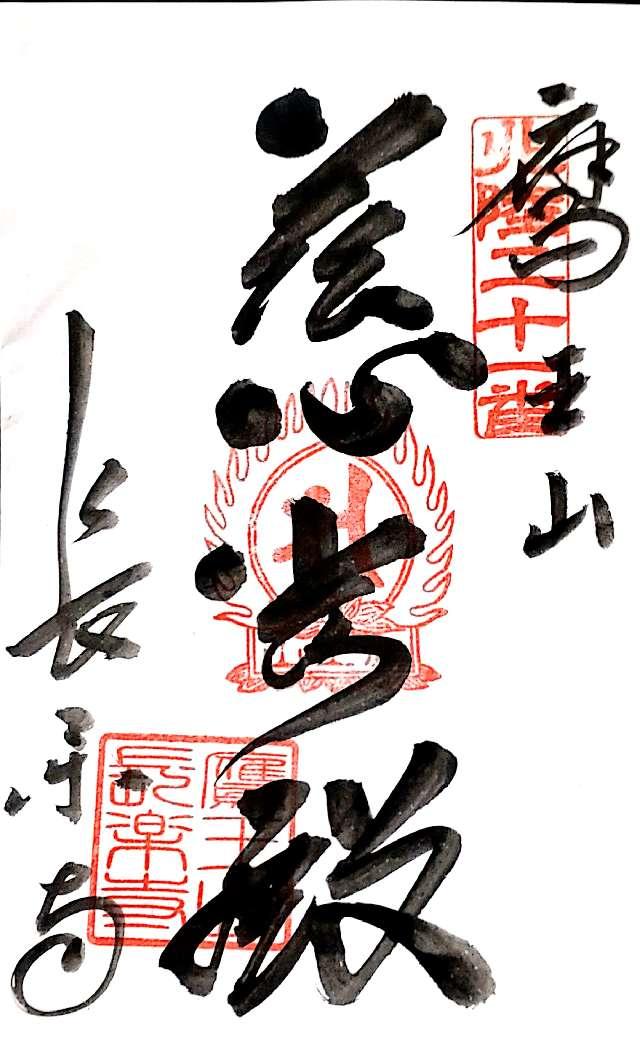 鷹王山
北陸二十一番
慈 殿
長楽寺
鷹王山
長楽寺